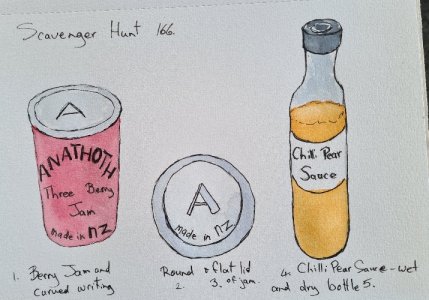 Scavenger Hunt 166.
A
ANATHOTH
Three Berry
Jam
made in NZ
A
made in NZ
Chilli Pear
Sauce
1. Berry Jam and
curved writing
Round & flat lid
2. 3. of jam.
4. Chilli Pear Sauce - wet
and dry bottle 5.